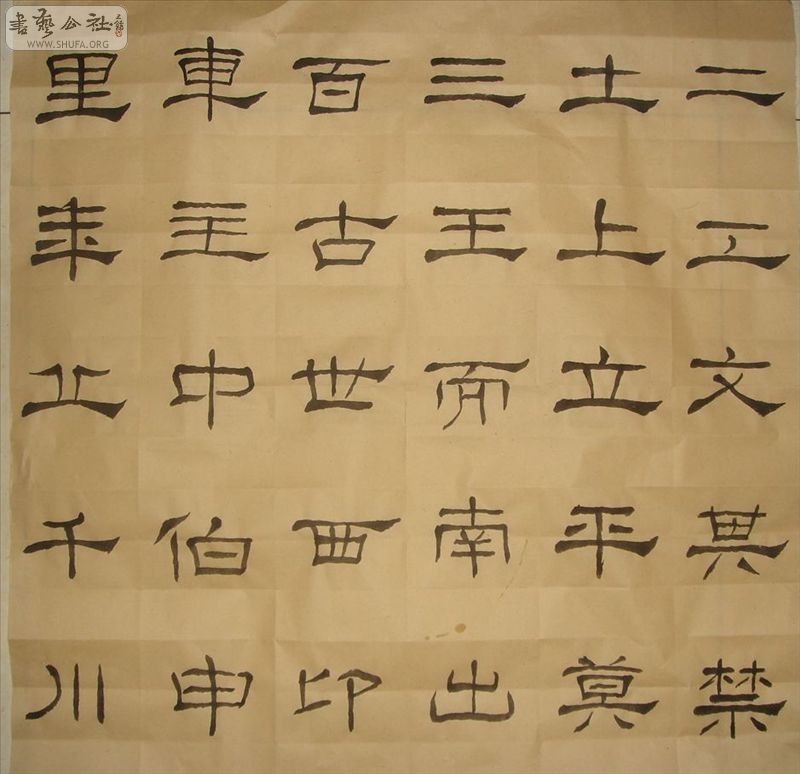 書藝公社
WWW.SHUFA.ORG
二工文其禁
土上立平莫
三王而南出
百古世西印
車中伯申
里年止千川